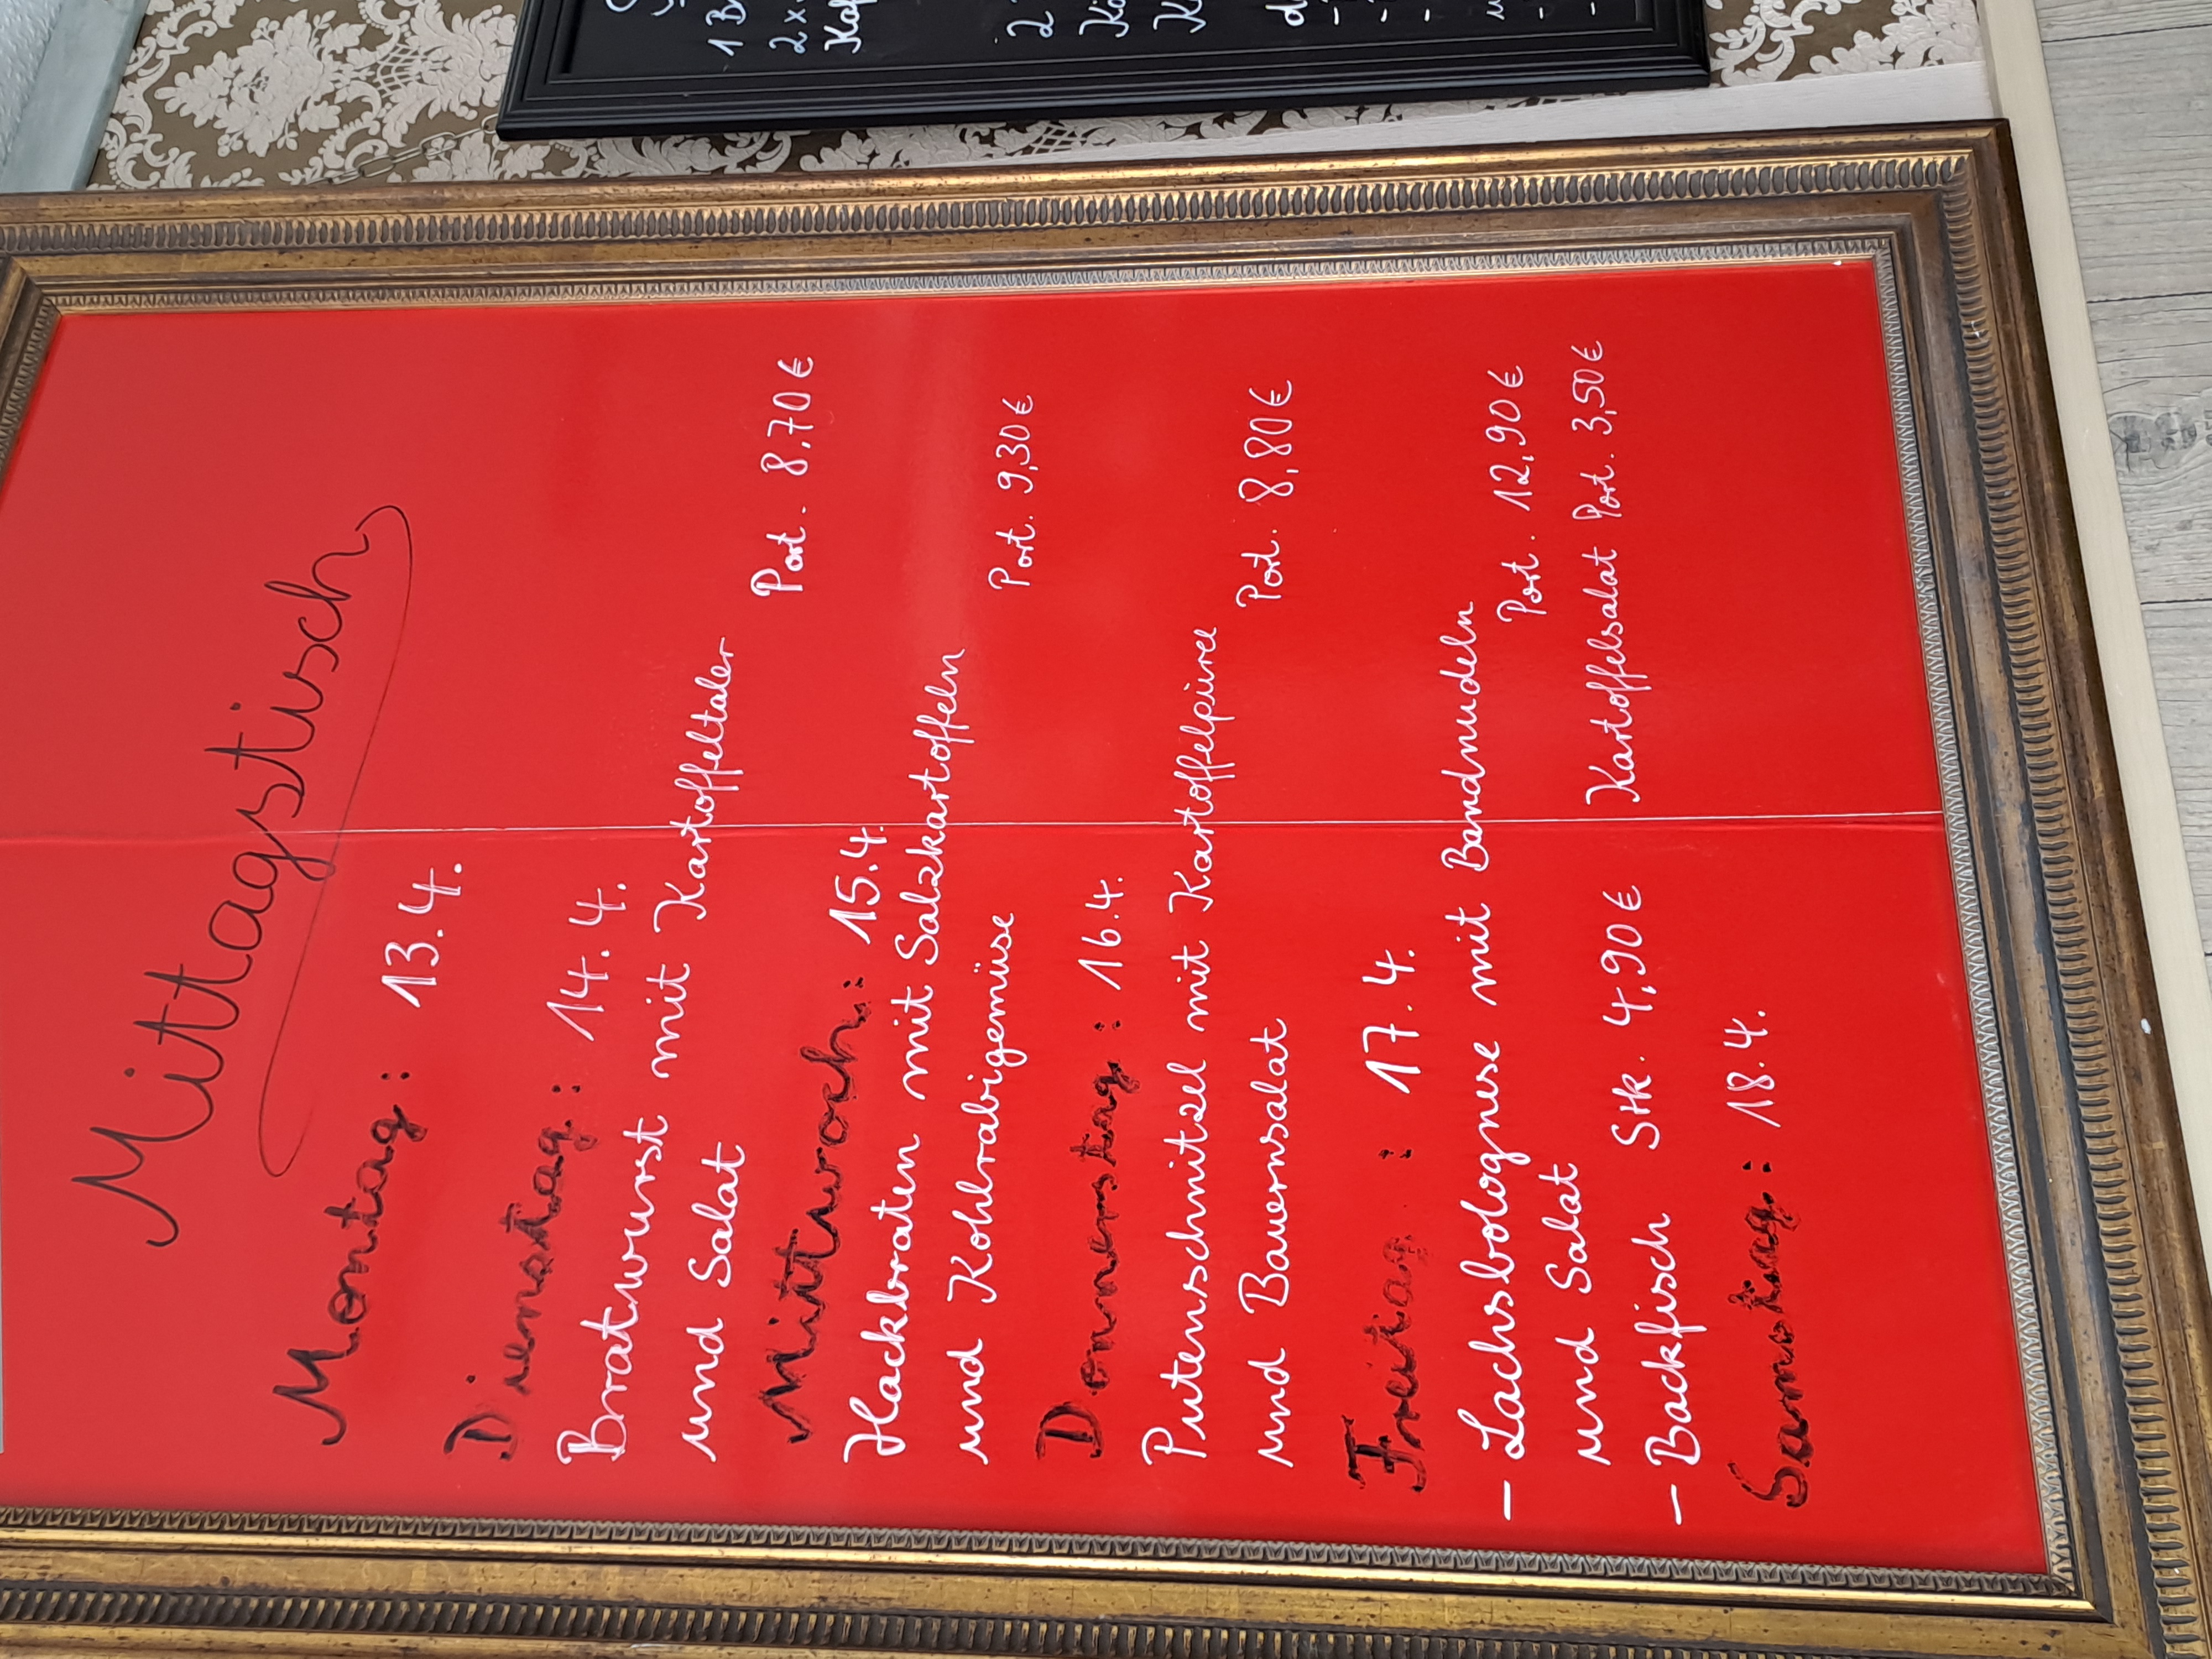 Mittagstisch
Montag: 13.4.
Dienstag: 14.4.
Bratwurst mit Kartoffeltaler
und Salat
Port. 8,70€
Mittwoch: 15.4.
Hackbraten mit Salzkartoffeln
und Kohlrabigemüse
Port. 9,30€
Donnerstag: 16.4.
Putenschnitzel mit Kartoffelpüree
und Bauernsalat
Port. 8,80€
Freitag: 17.4.
- Lachsbolognese mit Bandnudeln
und Salat
Port. 12,90€
- Backfisch Stk. 4,90€ Kartoffelsalat Port. 3,50€
Samstag: 18.4.
1 B
2x
2